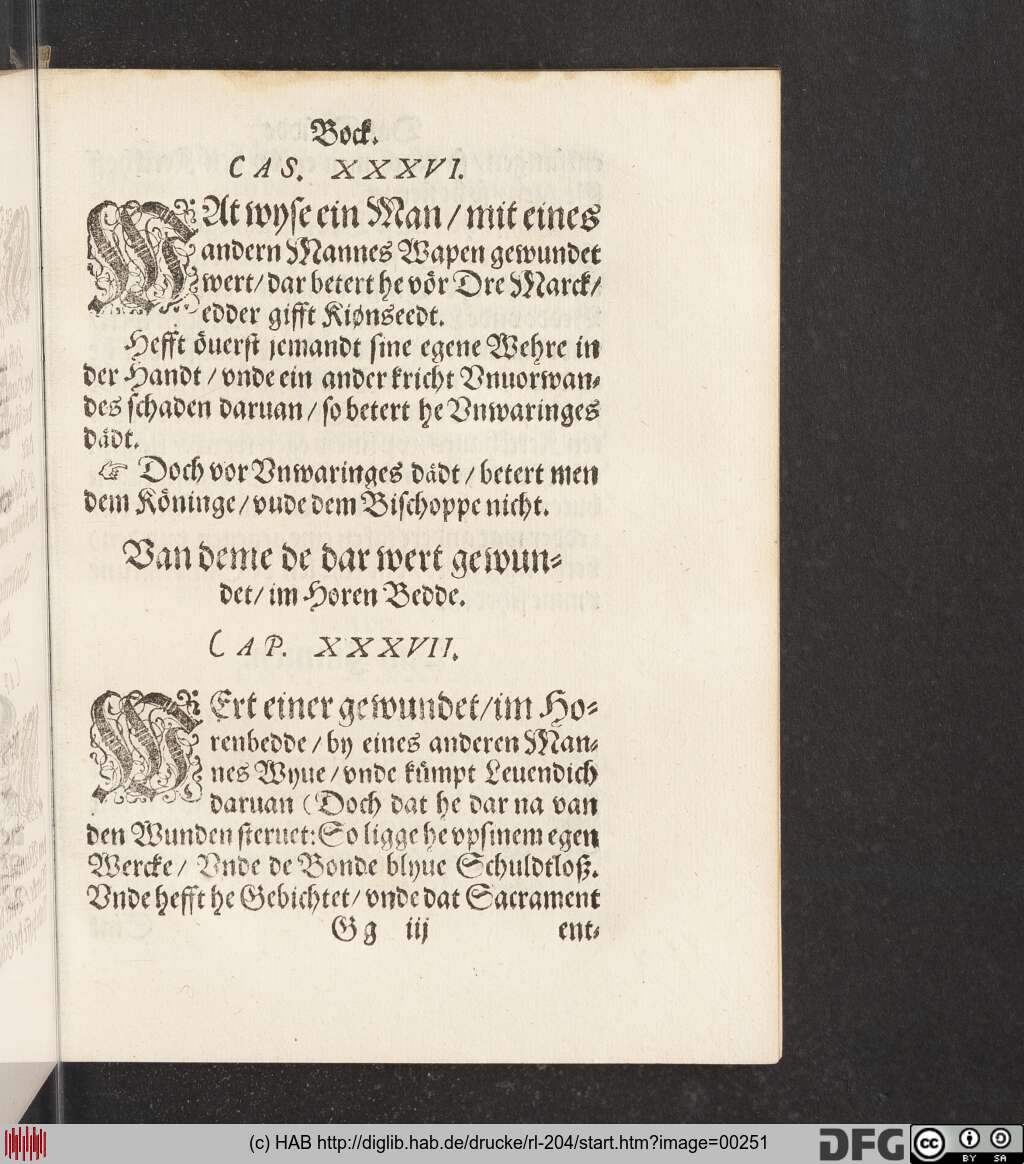 Bock.
CAS. XXXVI.
WAt wyse ein Man / mit eines
andern Mannes Wapen gewundet
wert / dar betert he vör Dre Marck /
edder gifft Kiønseedt.
Hefft överst jemandt sine egene Wehre in
der Handt / vnde ein ander kricht Vnuorwan⸗
des schaden daruan / so betert he Vnwaringes
dådt.
☞ Doch vor Vnwaringes dådt / betert men
dem Köninge / vude dem Bischoppe nicht.
Van deme de dar wert gewun⸗
det / im Horen Bedde.
CAP. XXXVII.
WErt einer gewundet / im Ho⸗
renbedde / by eines anderen Man⸗
nes Wyue / vnde kümpt Leuendich
daruan (Doch dat he dar na van
den Wunden steruet: So ligge he vpsinem egen
Wercke / Vnde de Bonde blyue Schuldtloß.
Vnde hefft he Gebichtet / vnde dat Sacrament
Gg iij ent⸗
(c) HAB http://diglib.hab.de/drucke/rl-204/start.htm?image=00251
DFG cc BY SA